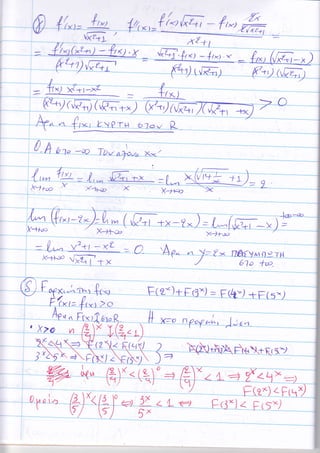 γ) f'(x) = f(x)/√(x²+1) , f''(x) = (f'(x)√(x²+1) - f(x) 2x/(2√(x²+1)))/(x²+1)
= (f'(x)(x²+1) - f(x)·x)/((x²+1)√(x²+1)) = (√(x²+1)·f(x) - f(x)·x)/((x²+1)(√(x²+1))) = f(x)(√(x²+1) - x)/((x²+1)(√(x²+1)))
= f(x) x²+1-x²/((x²+1)(√(x²+1))(√(x²+1)+x)) = f(x)/((x²+1)(√(x²+1))(√(x²+1)+x)) > 0
Άρα η f(x) ΚΥΡΤΗ στον R
Ο.Α στο -∞ Τον άξονα xx'
lim x→+∞ f(x)/x = lim x→+∞ (√(x²+1)+x)/x = lim x→+∞ x(√(1+1/x²)+1)/x = 2
lim x→+∞ (f(x)-2x) = lim x→+∞ (√(x²+1)+x-2x) = lim x→+∞ (√(x²+1)-x) =
= lim x→+∞ (x²+1-x²)/(√(x²+1)+x) = 0. Άρα η y=2x ΠΛ ΑΣΥΜΠΤΩΤΗ
στο +∞.
δ) F αρχική της f(x) F(2ˣ)+F(3ˣ) = F(4ˣ)+F(5ˣ)
F'(x)=f(x)>0
Άρα F(x)↑ στο R Η x=0 προφανής λύση
• x>0 η (2/4)ˣ ↓ (2/4<1)
2ˣ<4ˣ ⇒ F(2ˣ)<F(4ˣ)
3ˣ<5ˣ ⇒ F(3ˣ)<F(5ˣ) } ⇒
άρα (2/4)ˣ<(2/4)⁰ ⇒ (2/4)ˣ<1 ⇒ 2ˣ<4ˣ ⇒
F(2ˣ)<F(4ˣ)
Ομοίως (3/5)ˣ<(3/5)⁰ ⇔ 3ˣ/5ˣ < 1 ⇔ F(3ˣ)<F(5ˣ)